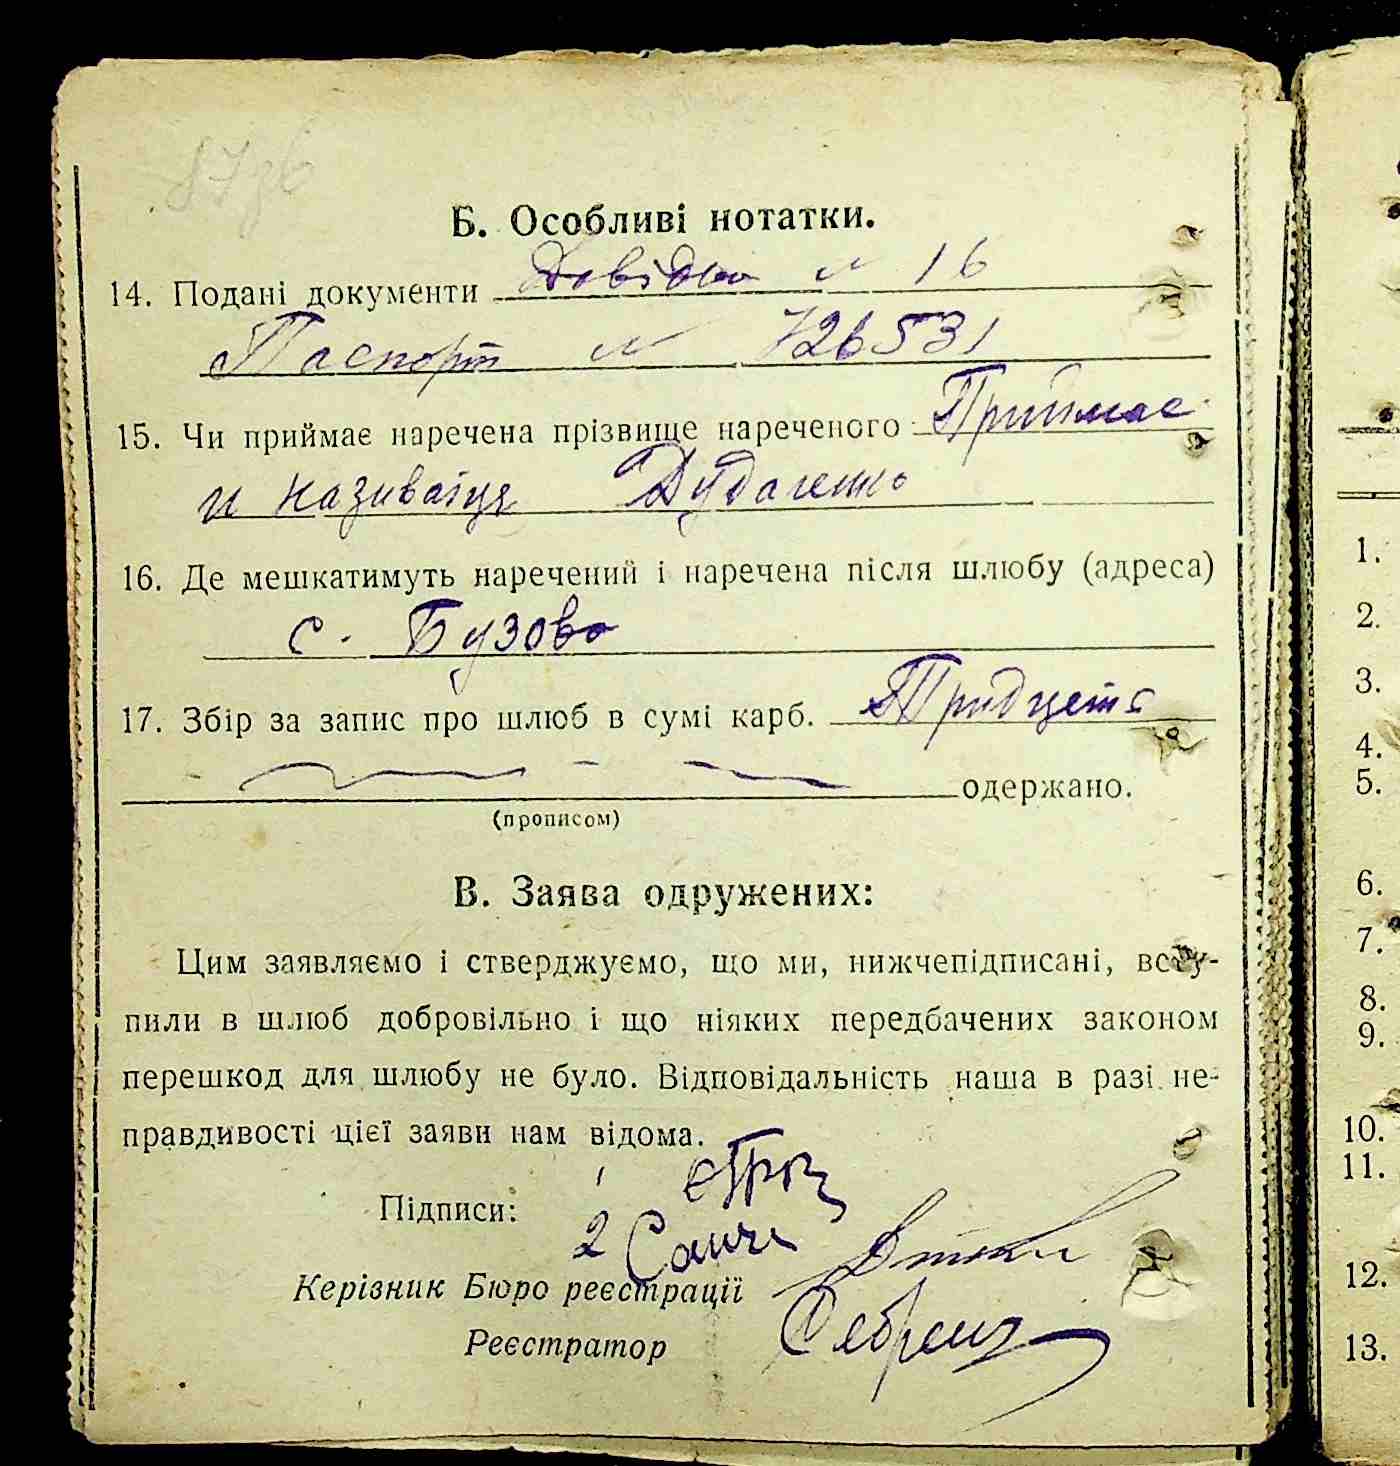 Б. Особливі нотатки.
14. Подані документи Довідка № 16
Паспорт № 726531
15. Чи приймає наречена прізвище нареченого Приймає
и називаіця Дудаченко
16. Де мешкатимуть наречений і наречена після шлюбу (адреса)
с. Бузова
17. Збір за запис про шлюб в сумі карб. Тридцеть
одержано.
(прописом)
В. Заява одружених:
Цим заявляємо і стверджуємо, що ми, нижчепідписані, всту-
пили в шлюб добровільно і що ніяких передбачених законом
перешкод для шлюбу не було. Відповідальність наша в разі не-
правдивості цієї заяви нам відома.
1
Підписи:
2
Керізник Бюро реєстрації
Реєстратор
1.
2.
3.
4.
5.
6.
7.
8.
9.
10.
11.
12.
13.